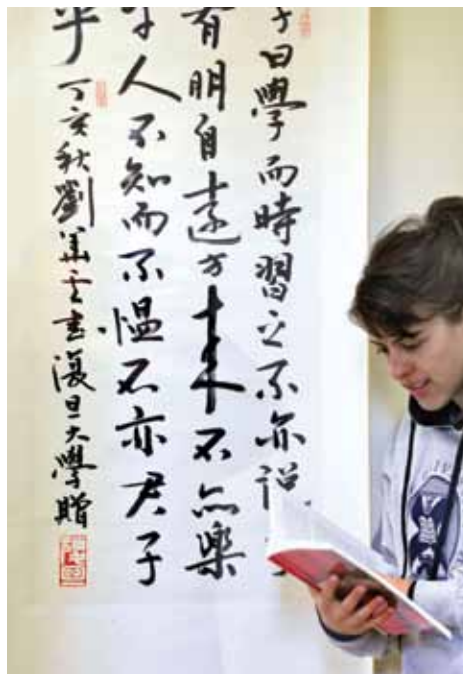 子曰學而時習之不亦說
有朋自遠方來不亦樂
乎人不知而不慍不亦君子
乎
丁亥秋劉云書復旦大學贈